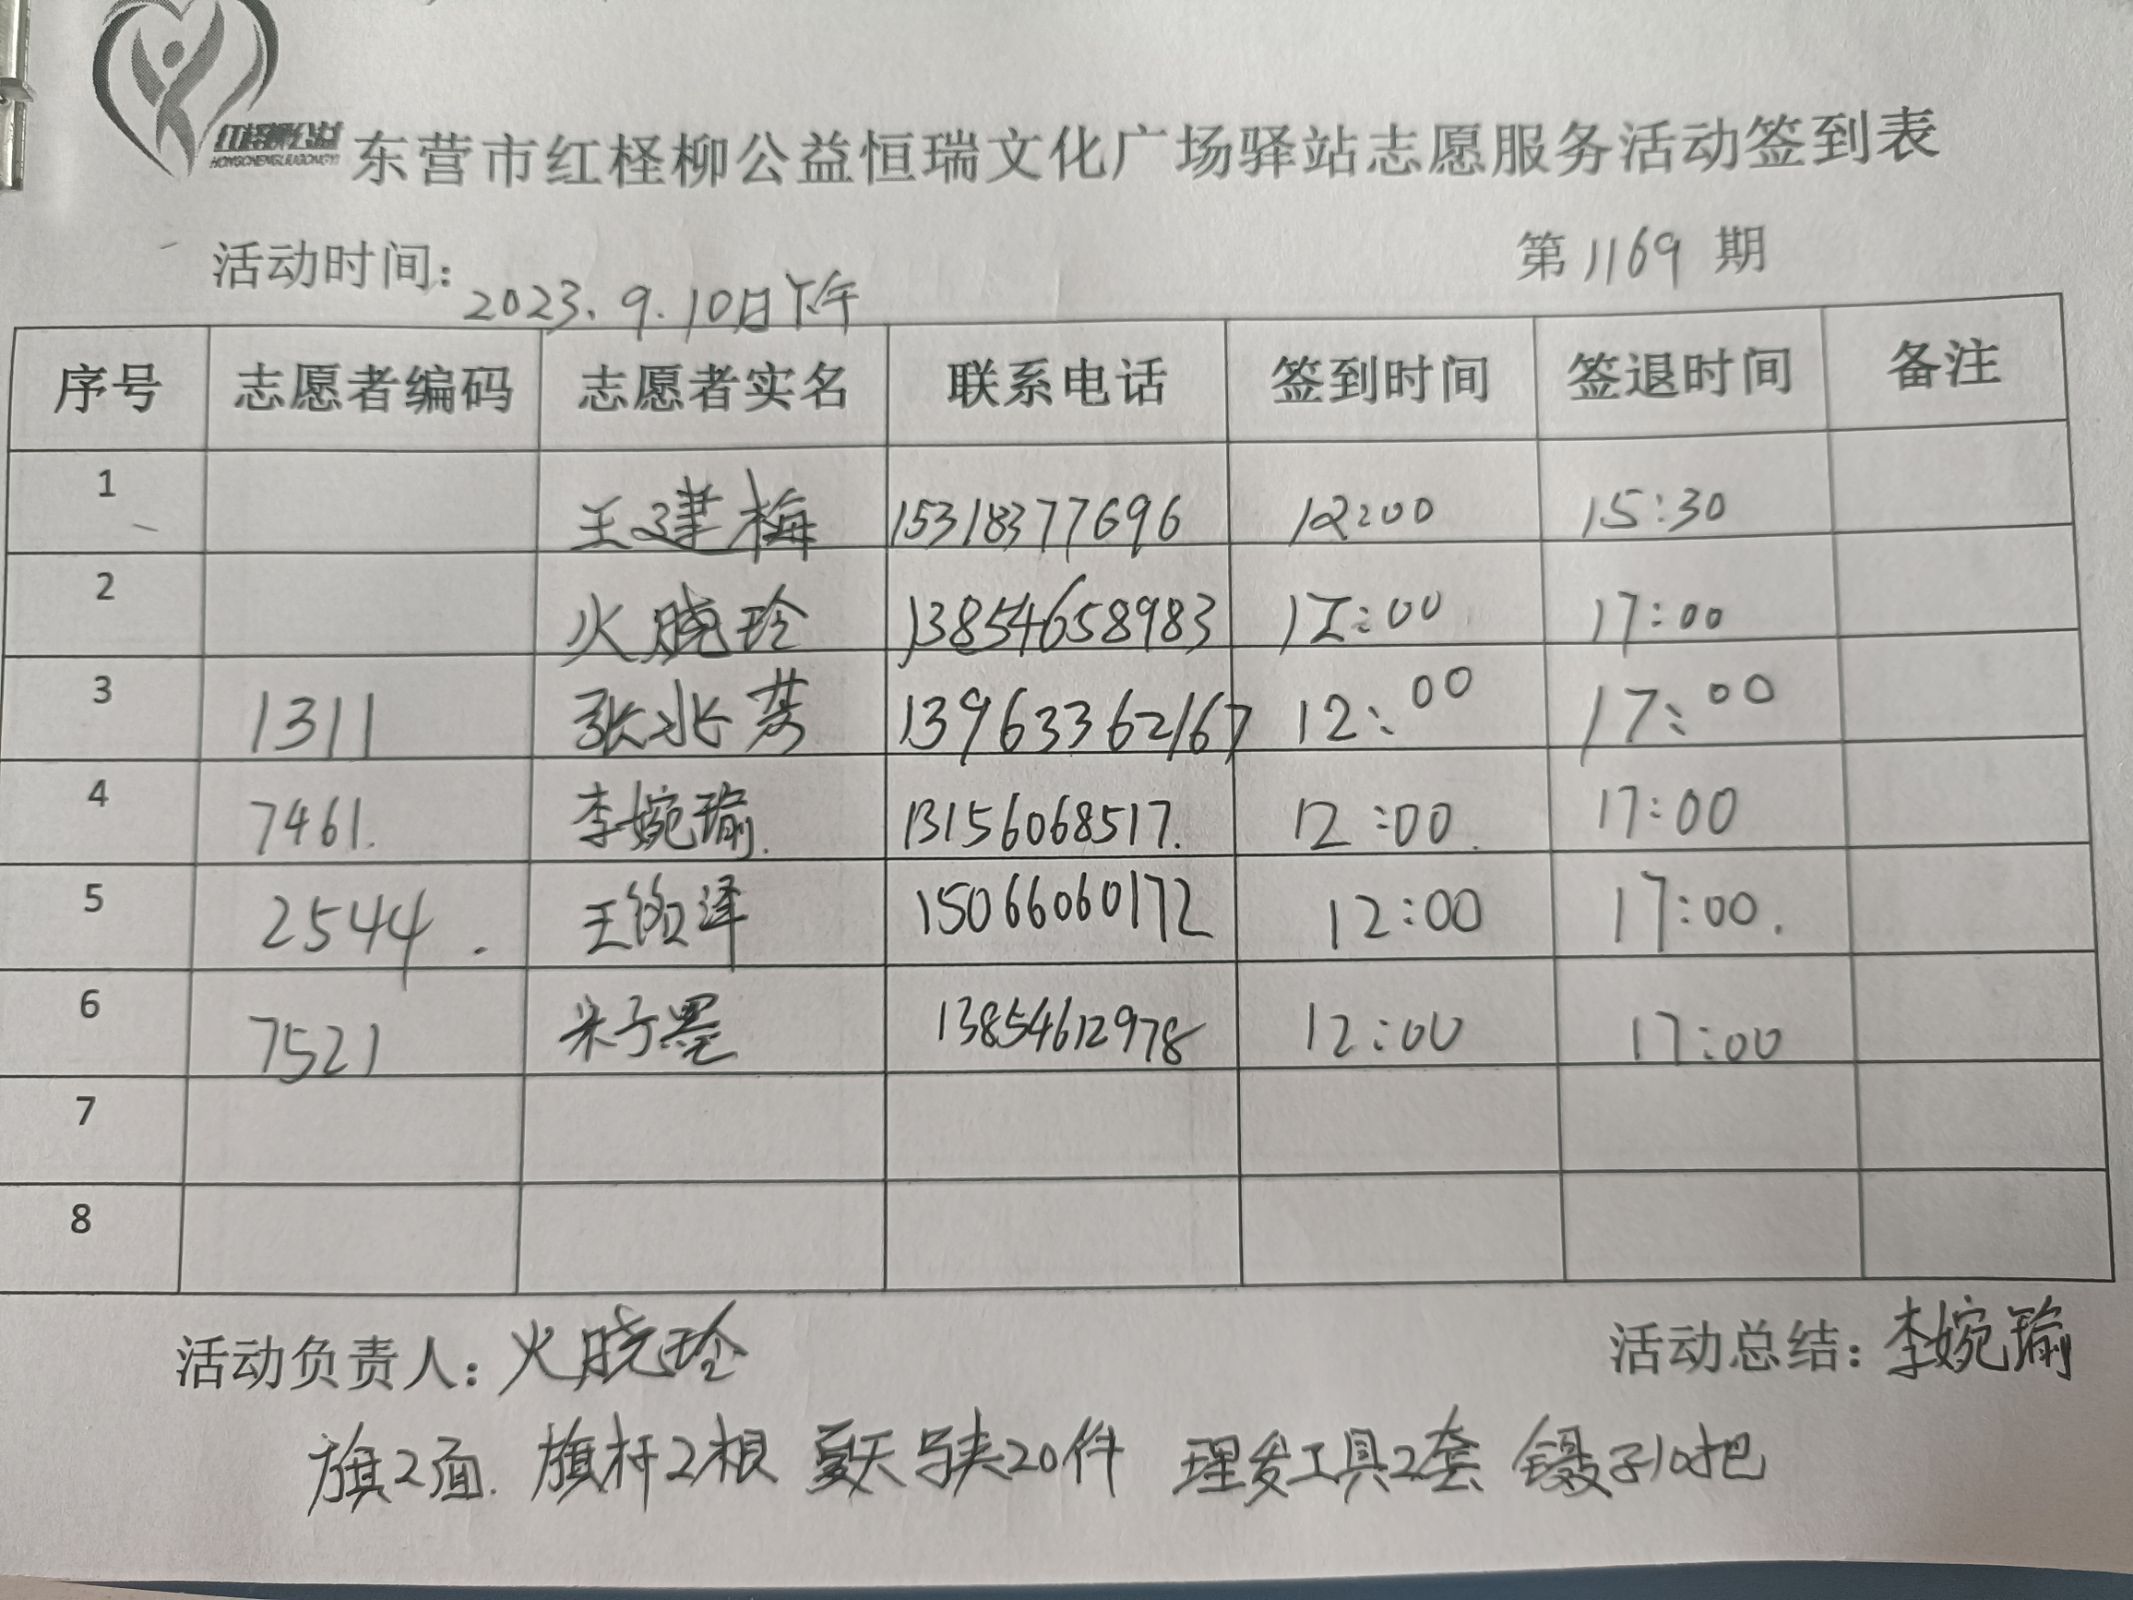 红柽柳公益
HONGCHENGLIUGONGYI
东营市红柽柳公益恒瑞文化广场驿站志愿服务活动签到表
活动时间：2023.9.10日下午 第1169期
序号 志愿者编码 志愿者实名 联系电话 签到时间 签退时间 备注
1 王建梅 15318377696 12:00 15:30
2 火晓玲 13854658983 12:00 17:00
3 1311 张冰芳 13963362167 12:00 17:00
4 7461. 李婉瑜. 13156068517. 12:00. 17:00
5 2544. 王泽 15066060172 12:00 17:00.
6 7521 朱子墨 13854612978 12:00 17:00
7
8
活动负责人：火晓玲 活动总结：李婉瑜
旗2面. 旗杆2根 夏天马夹20件 理发工具2套 镊子10把